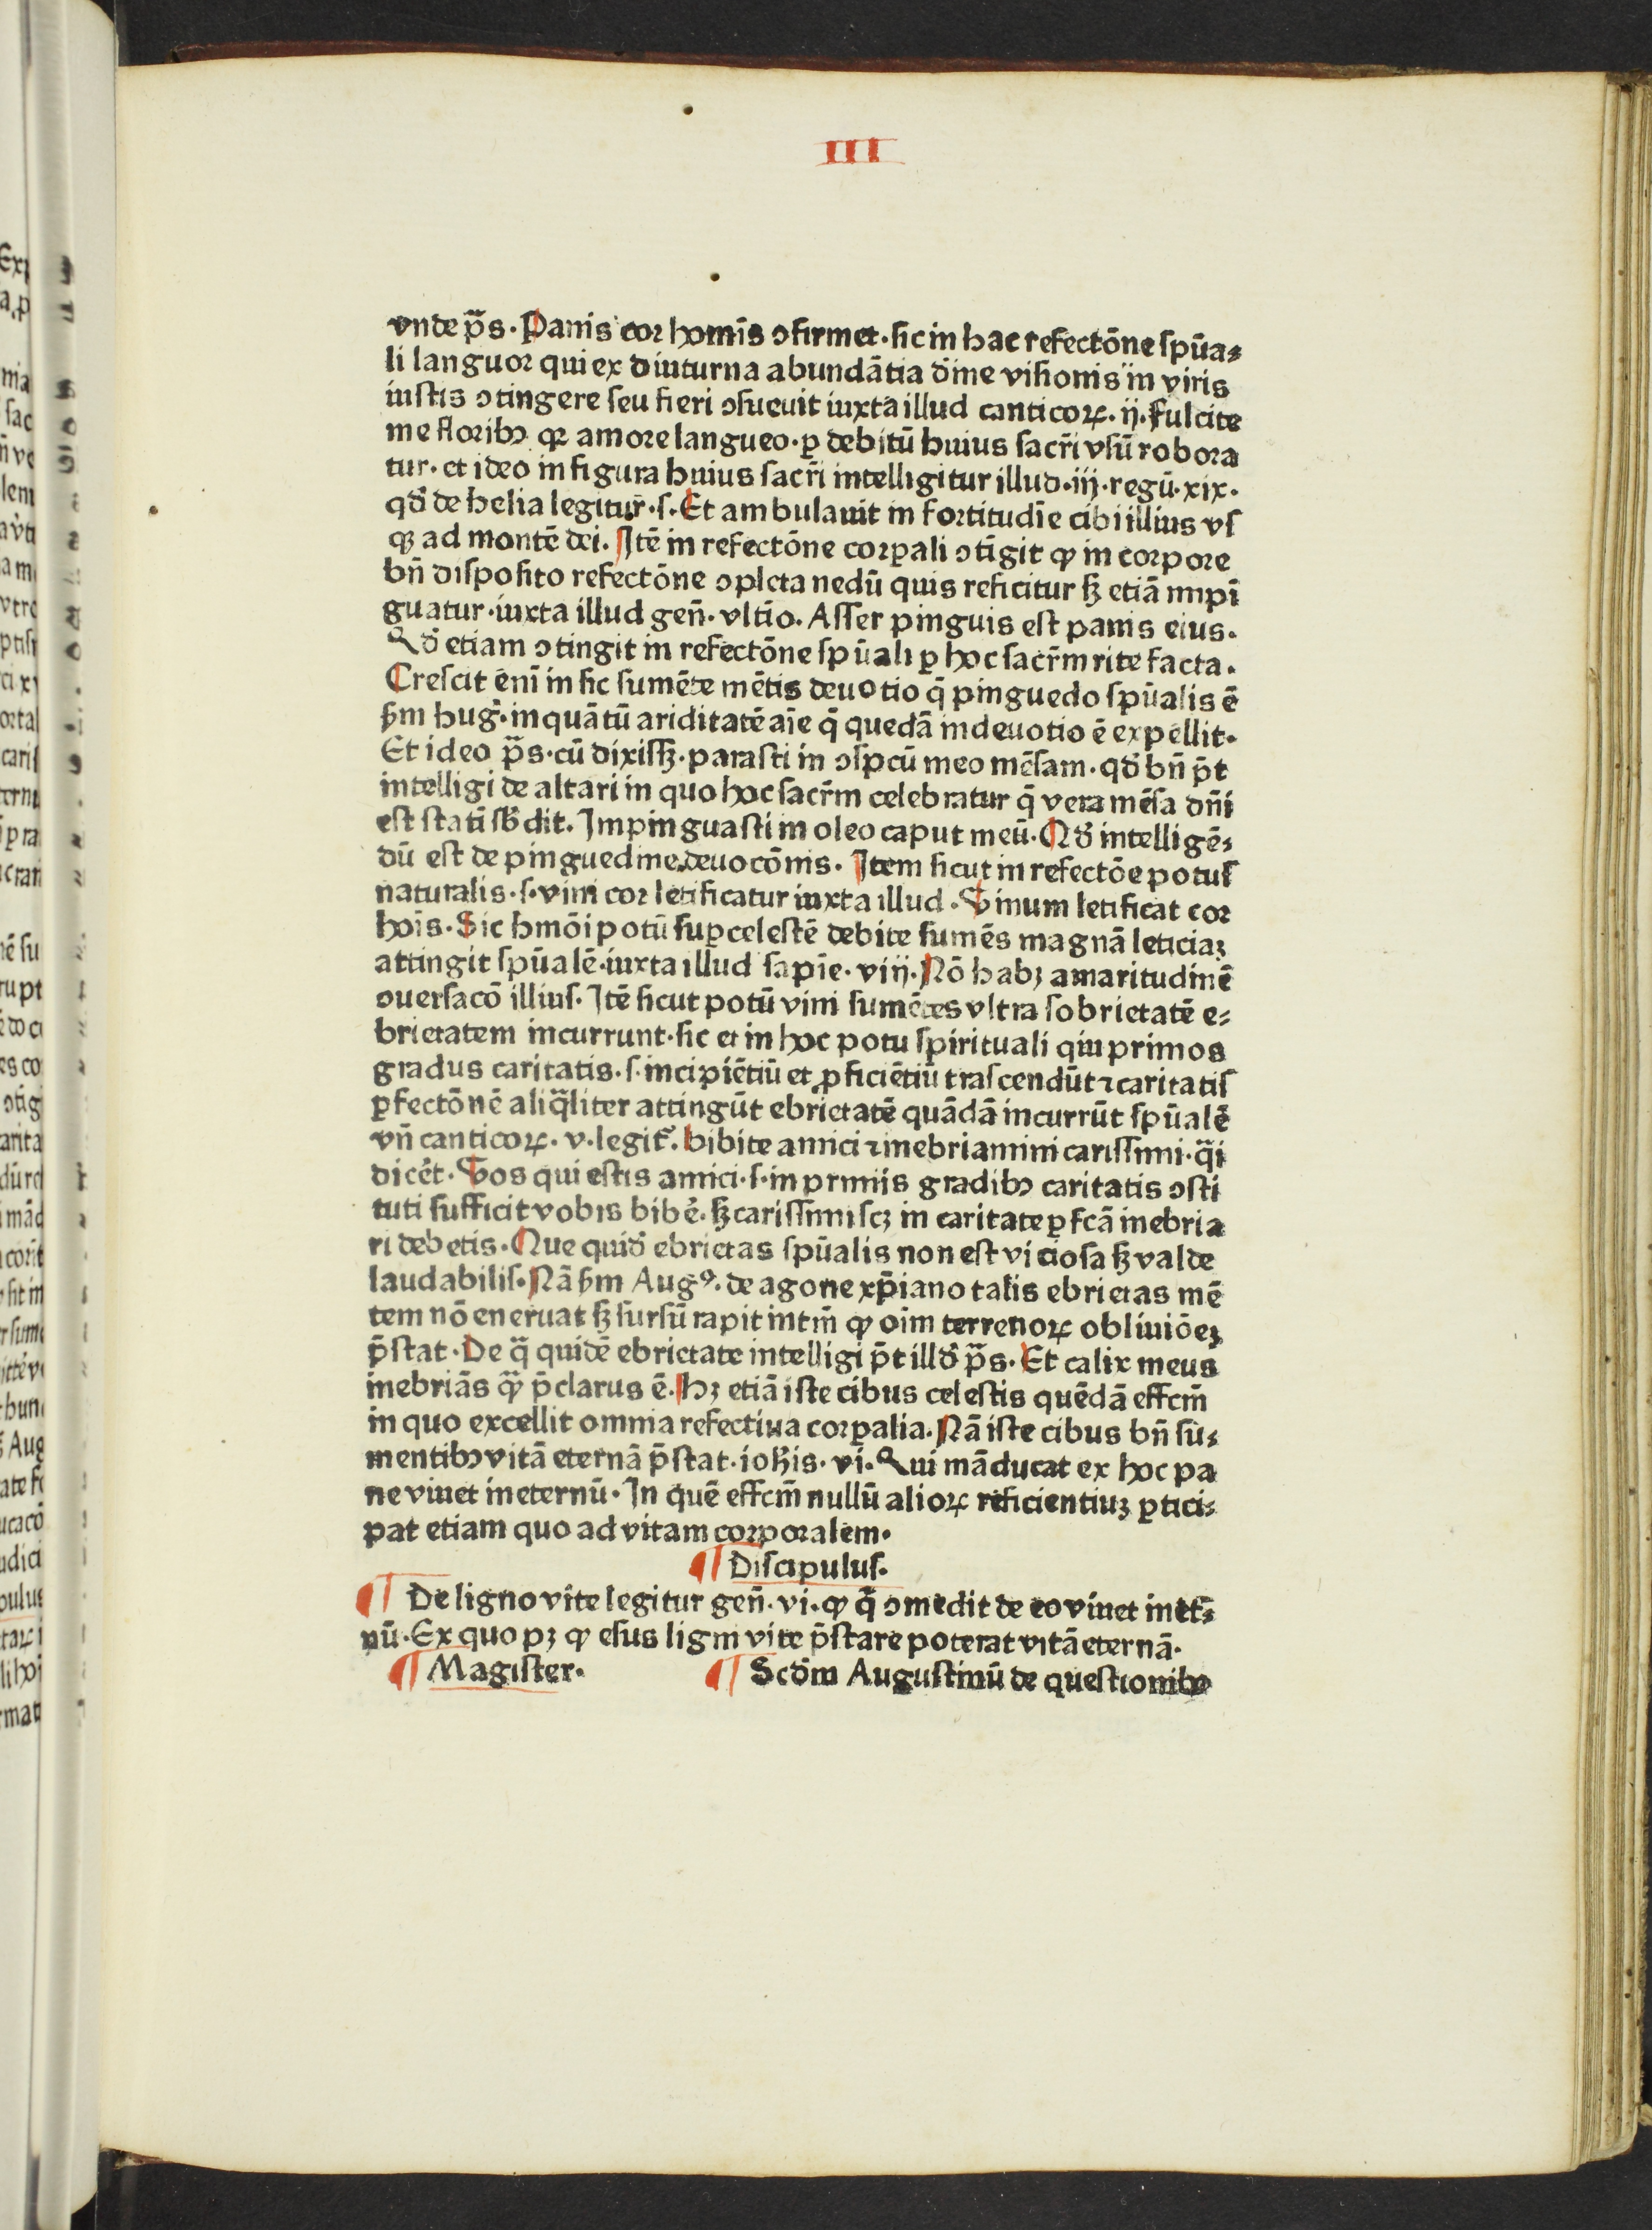 III
vnde ṗs. Panis cor homīs ꝯfirmet. sic in hac refectōne spūa⸗
li languor qui ex diuturna abundātia dīne visionis in viris
iustis ꝯtingere seu fieri ꝯsueuit iuxta illud canticoꝝ. ij. Fulcite
me floribꝯ qꝛ amore langueo. ꝑ debitū huius sacr̄i vsū robora
tur. et ideo in figura huius sacr̄i intelligitur illud. iij. regū. xix.
qd̓ de helia legitur̄. ſ. Et ambulauit in fortitudīe cibi illius vſ
qꝫ ad montē dei. Itē in refectōne corꝑali ꝯtīgit ꝙ in corpore
bn̄ disposito refectōne ꝯpleta nedū quis reficitur sꝫ etiā impī
guatur. iuxta illud gen̄. vltīo. Asser pinguis est panis eius.
Qd̓ etiam ꝯtingit in refectōne spūali ꝑ hoc sacr̄m rite facta.
Crescit enī in sic sumēte mētis deuotio q̄ pinguedo spūalis ē
ẜm hug̓. inquātū ariditatē aīe q̄ quedā indeuotio ē expellit.
Et ideo ṗs. cū dixissꝫ. parasti in ꝯspcū meo mēsam. qd̓ bn̄ p̄t
intelligi de altari in quo hoc sacr̄m celebratur q̄ vera mēsa dn̄i
est statī sb̓dit. Impinguasti in oleo caput meū. Qd̓ intelligē⸗
dū est de pinguedine deuocōnis. Item sicut in refectōe potuſ
naturalis. ſ. vini cor letificatur iuxta illud. Vinum letificat cor
hoīs. Sic hmōi potū suꝑcelestē debite sumēs magnā leticiaꝫ
attingit spūalē. iuxta illud sapīe. viij. Nō habꝫ amaritudinē
ꝯuersacō illiuſ. Itē sicut potū vini sumētes vltra sobrietatē e⸗
brietatem incurrunt. sic et in hoc potu spirituali qui primos
gradus caritatis. ſ. incipiētiū et ꝓficiētiū trascendūt ⁊ caritatiſ
ꝑfectōnē aliq̄liter attingūt ebrietatē quādā incurrūt spūalē
vn̄ canticoꝝ. v. legit̓. bibite amici ⁊ inebriamini carissimi. q̄i
dicēt. Vos qui estis amici. ſ. in primis gradibꝯ caritatis ꝯsti
tuti sufficit vobis bibe̓. sꝫ carissimi scꝫ in caritate ꝑfcā inebria
ri debetis. Que quid̓ ebrietas spūalis non est viciosa sꝫ valde
laudabiliſ. Nā ẜm Augꝰ. de agone xp̄iano talis ebrietas mē
tem nō eneruat sꝫ sursū rapit intm̄ ꝙ oīm terrenoꝝ obliuiōeꝫ
p̄stat. De q̄ quidē ebrietate intelligi p̄t illd̓ ṗs. Et calix meus
inebriās q̄ꝫ p̄clarus ē. Hꝫ etiā iste cibus celestis quēdā effcm̄
in quo excellit omnia refectiua corꝑalia. Nā iste cibus bn̄ su⸗
mentibꝯ vitā eternā p̄stat. ioh̄is. vi. Qui māducat ex hoc pa
ne viuet in eternū. In quē effcm̄ nullū alioꝝ reficientiuꝫ ꝑtici⸗
pat etiam quo ad vitam corporalem.
¶ Discipulus.
¶ De ligno vite legitur gen̄. vi. ꝙ q̄ ꝯmedit de eo viuet in et̄⸗
nū. Ex quo pꝫ ꝙ esus ligni vite p̄stare poterat vitā eternā.
¶ Magister. ¶ Scd̄m Augustinū de questionibꝯ